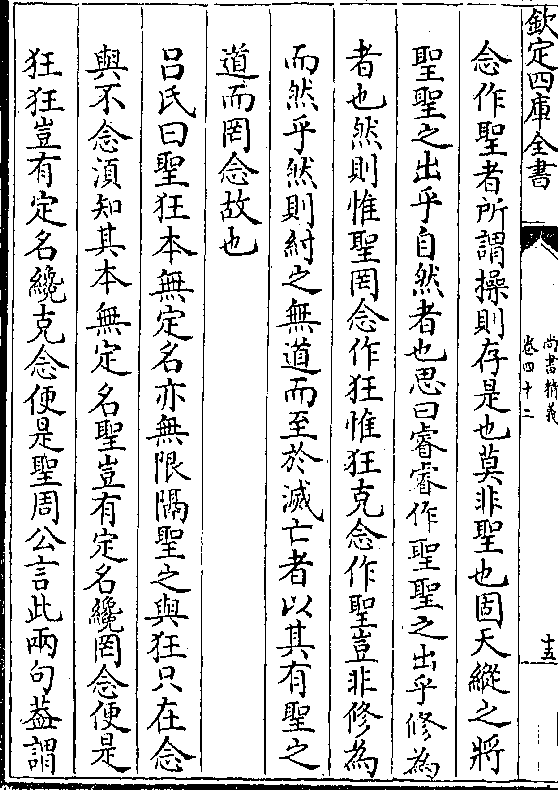 欽定四庫全書
尚書精義
卷四十二
十五
念作聖者所謂操則存是也莫非聖也固天縱之將
聖聖之出乎自然者也思曰睿睿作聖聖之出乎修為
者也然則惟聖罔念作狂惟狂克念作聖豈非修為
而然乎然則紂之無道而至於滅亡者以其有聖之
道而罔念故也
吕氏曰聖狂本無定名亦無限隔聖之與狂只在念
與不念須知其本無定名聖豈有定名纔罔念便是
狂狂豈有定名纔克念便是聖周公言此兩句葢謂